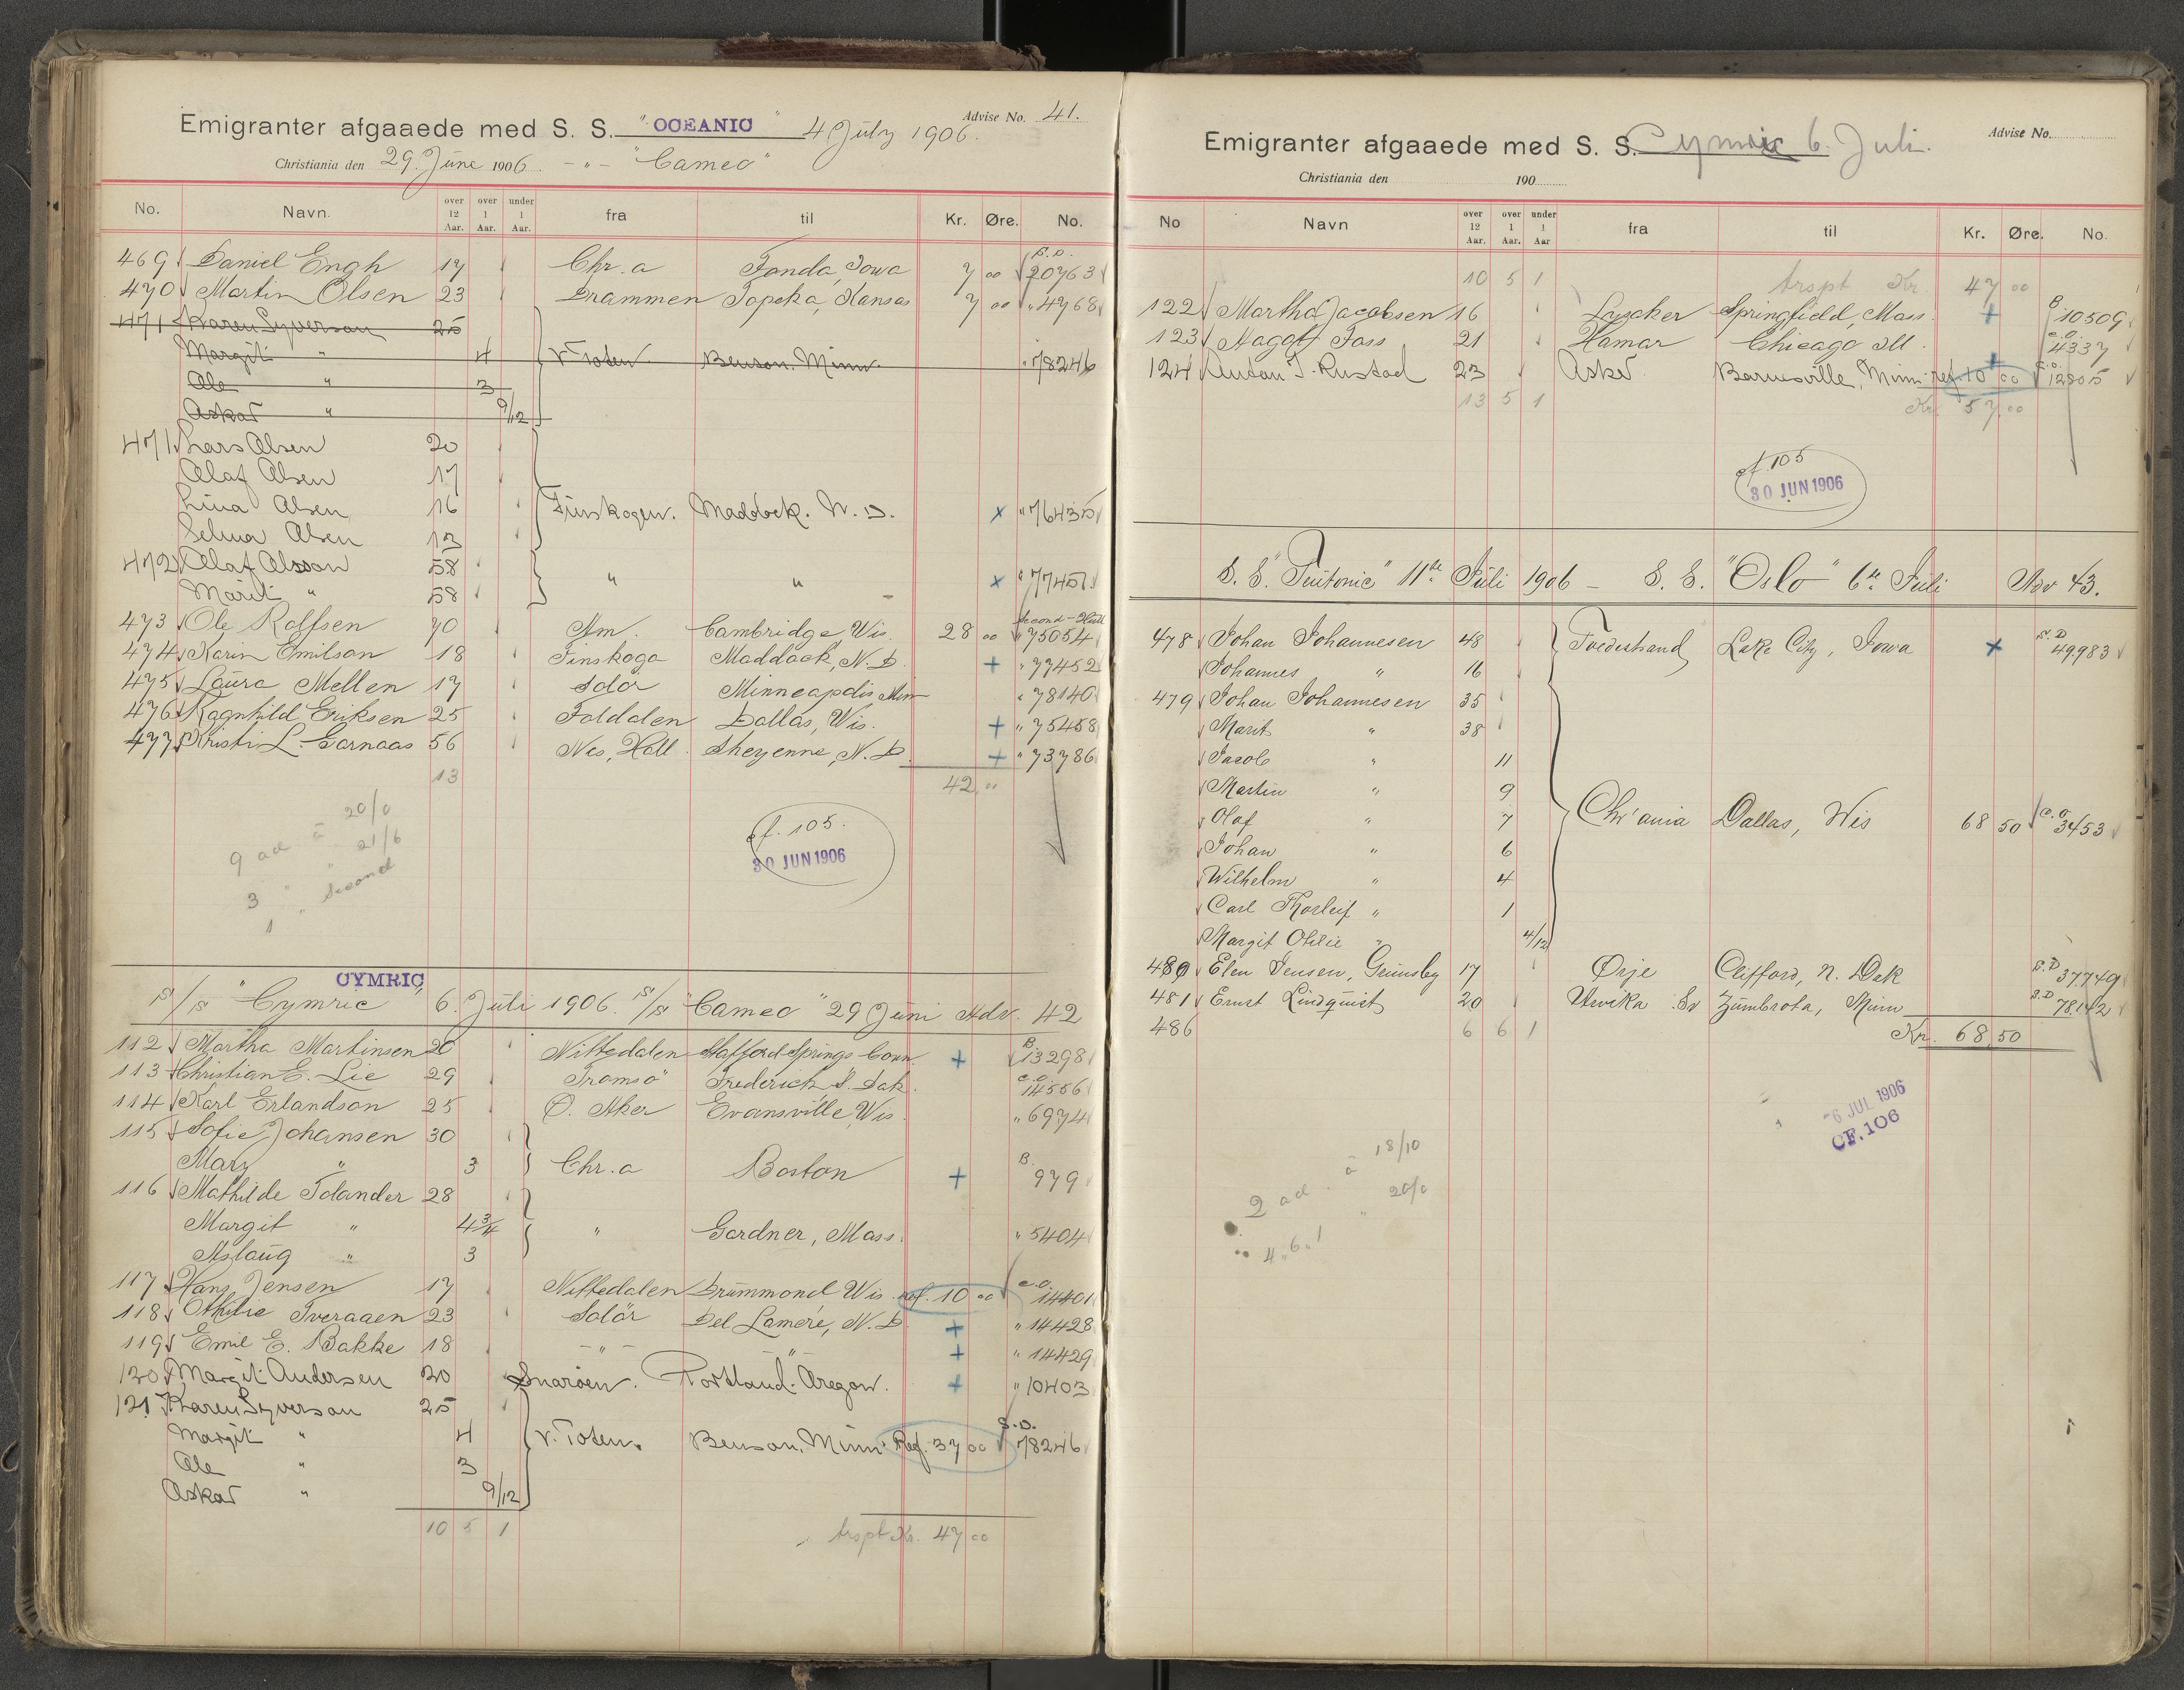 Emigranter afgaaede med S. S. "OCEANIC" 4 July 1906. Advise No. 41.
Christiania den 29. June 1906 - " - "Cameo"
No. Navn. over 12 Aar. over 1 Aar. under 1 Aar. fra til Kr. Øre. No.
469 Daniel Engh 17 Chr.a Fonda, Iowa 7 00 S.D. 20763
470 Martin Olsen 23 Drammen Topeka, Kansas 7 00 " 4768
471 Karen Syverson 25
Margit " 4 V. Toten Benson. Minn. " 78246
Ole " 3
Oskar " 9/12
471 Lars Olsen 20
Olaf Olsen 17
Lina Olsen 16 Finskogen. Maddock. N. D. x " 76435
Selma Olsen 13
472 Olaf Olsson 58
Marit " 58 " " x " 77451
473 Ole Rolfsen 70 Am. Cambridge Wis. 28 00 " 75054
474 Karin Emilson 18 Finskoga Maddock, N. D. + " 77452
475 Laura Mellen 17 Solör Minneapolis Min " 78140
476 Ragnhild Eriksen 25 Foldalen Dallas, Wis. + " 75458
477 Kristi L. Garnaas 56 Nes, Hall. Sheyenne, N. D. + " 73786
13 42 "
20/0
9 ad à 21/6
3 " Second
1 "
cf. 105.
30 JUN 1906
CYMRIC
s/s "Cymric" 6. Juli 1906. s/s "Cameo" 29 Juni Adv. 42
112 Martha Martinsen 20 Nittedalen Stafford Springs Conn. + B. 13298
113 Christian E. Lie 29 Tromsö Frederick S. Dak. C.O. 14556
114 Karl Erlandson 25 Ö. Aker Evansville Wis. " 6974
115 Sofie Johansen 30
Mary " 3 Chr.a Boston + B. 979
116 Mathilde Tolander 28
Margit " 4 3/4 " Gardner, Mass. " 5404
Aslaug " 3
117 Hans Jensen 17 Nittedalen Drummond Wis. ref. 10 00 C.O. 14401
118 Othilie Tveraaen 23 Solör Del Lamere, N. D. + " 14428
119 Emil E. Bakke 18 - " - - " - + " 14429
120 Margit Andersen 20 Snaröen. Portland. Oregon. + " 10403
121 Karen Syverson 25
Margit " 4 V. Toten. Benson. Minn. Ref. 37 00 S.D. 78246
Ole " 3
Oskar " 9/12
10 5 1 trspt Kr. 47 00
Emigranter afgaaede med S. S. Cymric 6. Juli. Advise No.
Christiania den 190
No Navn over 12 Aar. over 1 Aar. under 1 Aar fra til Kr. Øre. No.
10 5 1 trspt Kr. 47 00
122 Martha Jacobsen 16 Lysaker Springfield, Mass. + B 10509
123 Hagoff Foss 21 Hamar Chicago Ill. C.O. 4337
124 Anton T. Rustad 23 Asker Barnesville, Minn. ref. 10 00 C.O. 12805
13 5 1 Kr. 57.00
cf. 105
30 JUN 1906
S. S. "Teutonic" 11te Juli 1906 - S. S. "Oslo" 6te Juli Adv 43.
478 Johan Johannesen 48 Tvedestrand Lake City, Iowa x S.D 49983
Johannes " 16
479 Johan Johannesen 35
Marit " 38
Jacob " 11
Martin " 9
Olaf " 7 Chr'ania Dallas, Wis 68 50 C.O 3453
Johan " 6
Wilhelm " 4
Carl Thorleif " 1
Margit Otilie " 4/12
480 Elen Jensen, Grimsby 17 Ørje Clifford, N. Dak S.D 37749
481 Ernst Lindquist 20 Arvika Sv Zumbrota, Minn S.D 78142
486 6 6 1 Kr. 68.50
-6 JUL 1906
CF. 106
18/10
2 ad. à
20/0
4 " 6 " 1